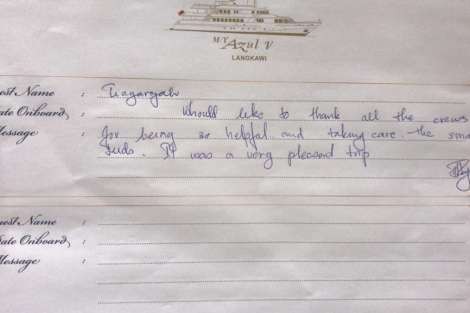 M/Y Azul V
LANGKAWI
est Name :
ate Onboard : Would like to thank all the crews
essage : for being so helpful and taking care the sma
It was a very pleasand trip
uest Name :
ate Onboard :
Message :